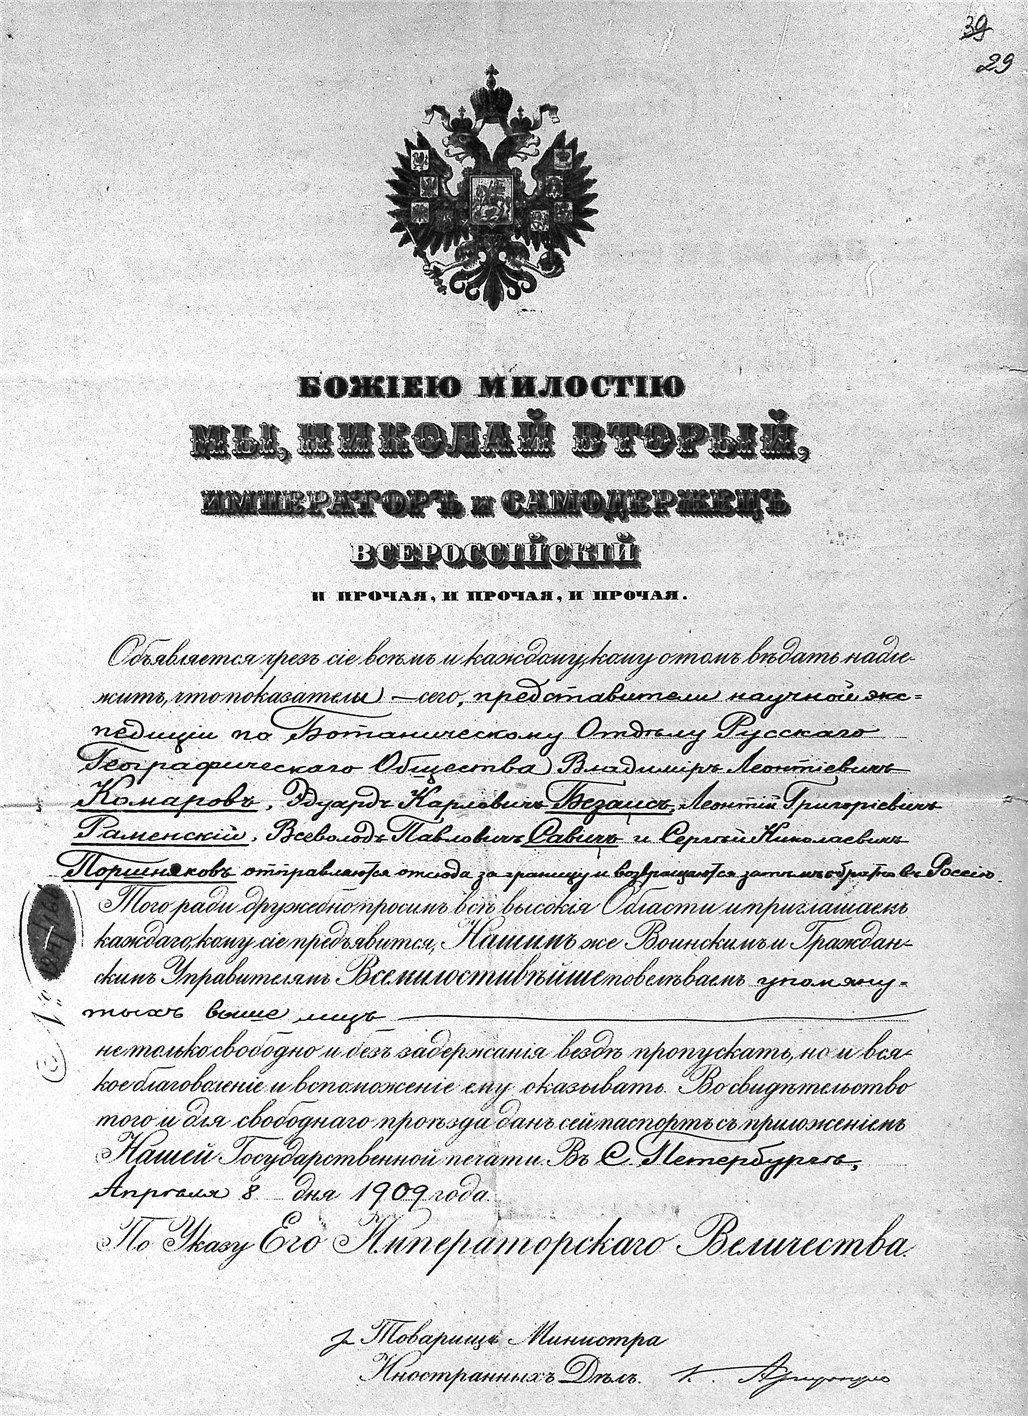 39
29
БОЖІЕЮ МИЛОСТІЮ
МЫ, НИКОЛАЙ ВТОРЫЙ,
ИМПЕРАТОРЪ и САМОДЕРЖЕЦЪ
ВСЕРОССІЙСКІЙ
И ПРОЧАЯ, И ПРОЧАЯ, И ПРОЧАЯ.
Объявляется чрезъ сіе всѣмъ и каждому, кому о томъ вѣдать надле-
житъ, что показатели сего, представители научной экс=
педиціи по Ботаническому Отдѣлу Русскаго
Географическаго Общества Владиміръ Леонтіевичъ
Комаровъ, Эдуардъ Карловичъ Безаисъ, Леонтій Григоріевичъ
Раменскій, Всеволодъ Павловичъ Савичъ и Сергѣй Николаевичъ
Поршняковъ отправляются отсюда за границу и возвращаются затѣмъ обратно въ Россію.
Того ради дружебно просимъ всѣ высокія Области и приглашаемъ
каждаго, кому сіе предъявится, Нашимъ же Воинскимъ и Граждан-
скимъ Управителямъ Всемилостивѣйше повелѣваемъ упомяну=
тыхъ выше лицъ
не только свободно и безъ задержанія вездѣ пропускать, но и вся-
кое благоволеніе и вспоможеніе ему оказывать. Во свидѣтельство
того и для свободнаго проѣзда данъ сей паспортъ съ приложеніемъ
Нашей Государственной печати. Въ С. Петербургѣ,
Апрѣля 8 дня 1909 года.
По Указу Его Императорскаго Величества.
Товарищъ Министра
Иностранныхъ Дѣлъ.
№